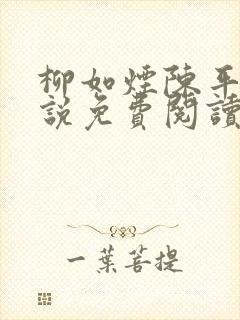 柳如煙陳平
說免費閱讀
一葉菩提